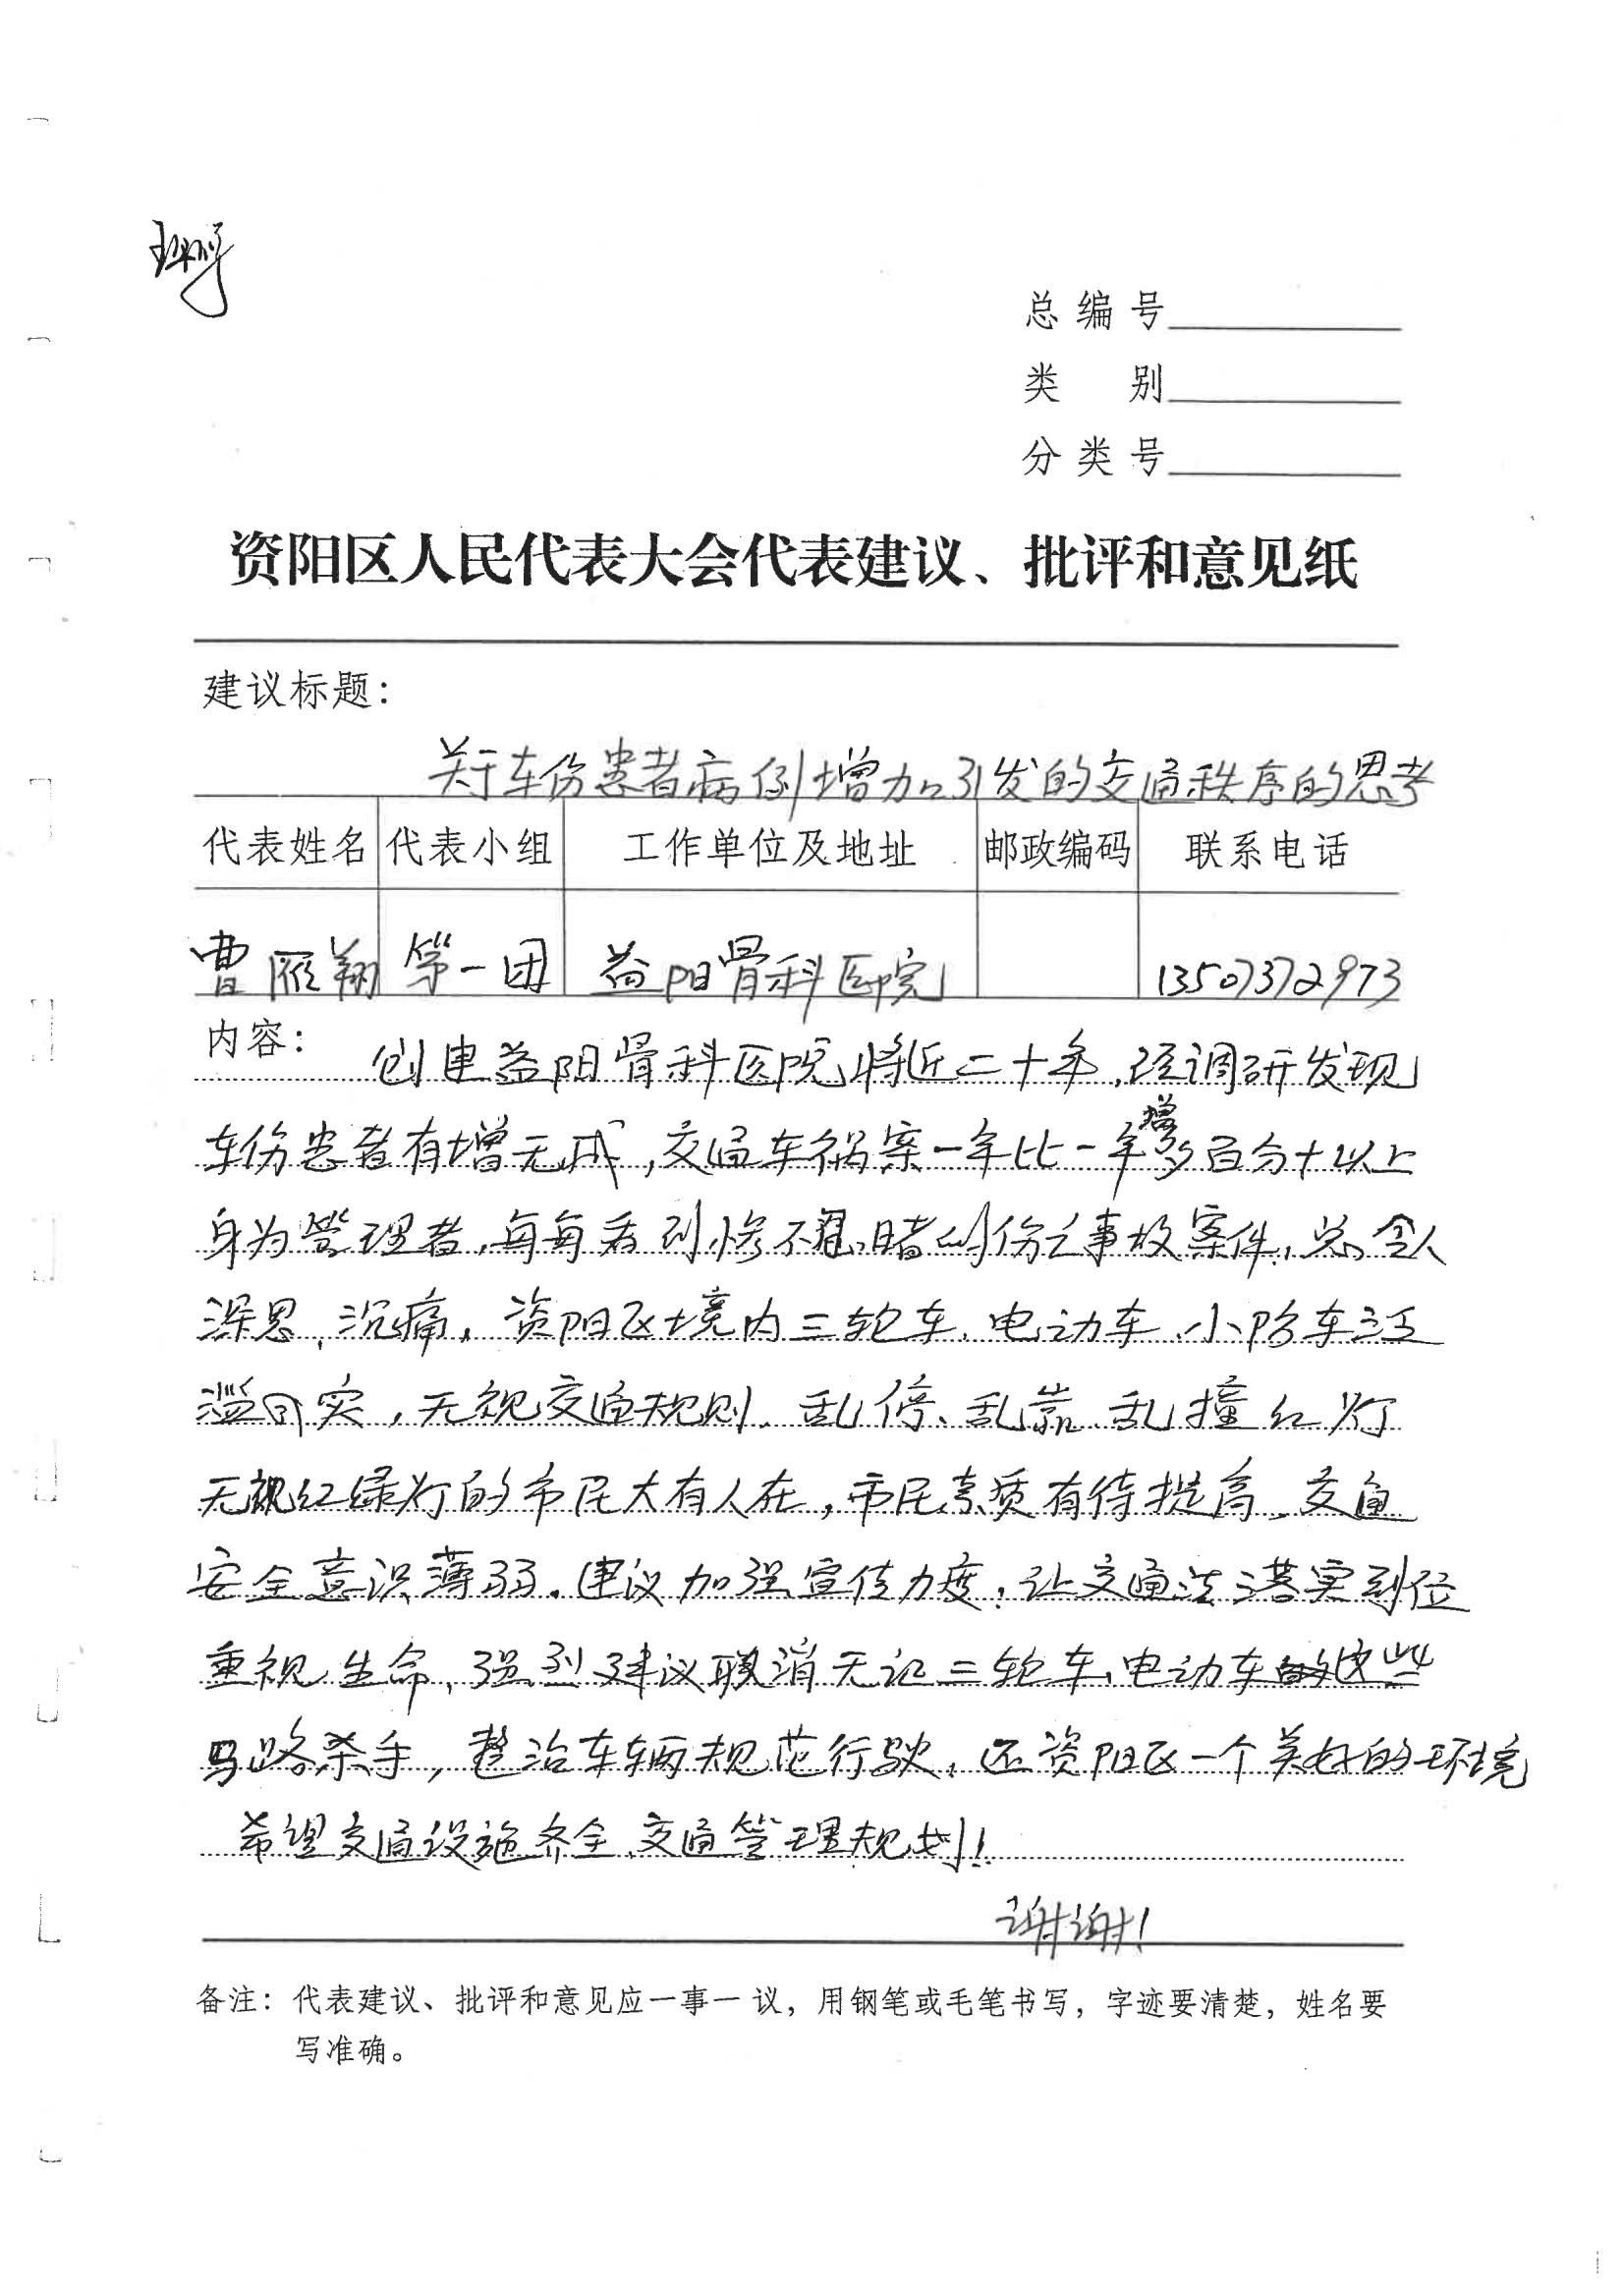 总编号
类 别
分类号
资阳区人民代表大会代表建议、批评和意见纸
建议标题：
关于车伤患者病例增加引发的交通秩序的思考
代表姓名 代表小组 工作单位及地址 邮政编码 联系电话
曹雁翔 第一团 益阳骨科医院 13507372973
内容： 创建益阳骨科医院将近二十年,经调研发现
车伤患者有增无减,交通车祸案一年比一年增多百分十以上
身为管理者,每每看到惨不忍睹的伤亡事故案件,总令人
深思、沉痛,资阳区境内三轮车、电动车、小
滥 实,无视交通规则、乱停、乱靠、乱撞红灯
无视红绿灯的市民大有人在,市民素质有待提高、交通
安全意识薄弱。建议加强宣传力度,让交通法落实到位
重视生命、强烈建议取消无证三轮车、电动车这些
马路杀手,整治车辆规范行驶,还资阳区一个美好的环境
希望交通设施齐全、交通管理规划!
谢谢!
备注：代表建议、批评和意见应一事一议，用钢笔或毛笔书写，字迹要清楚，姓名要
写准确。